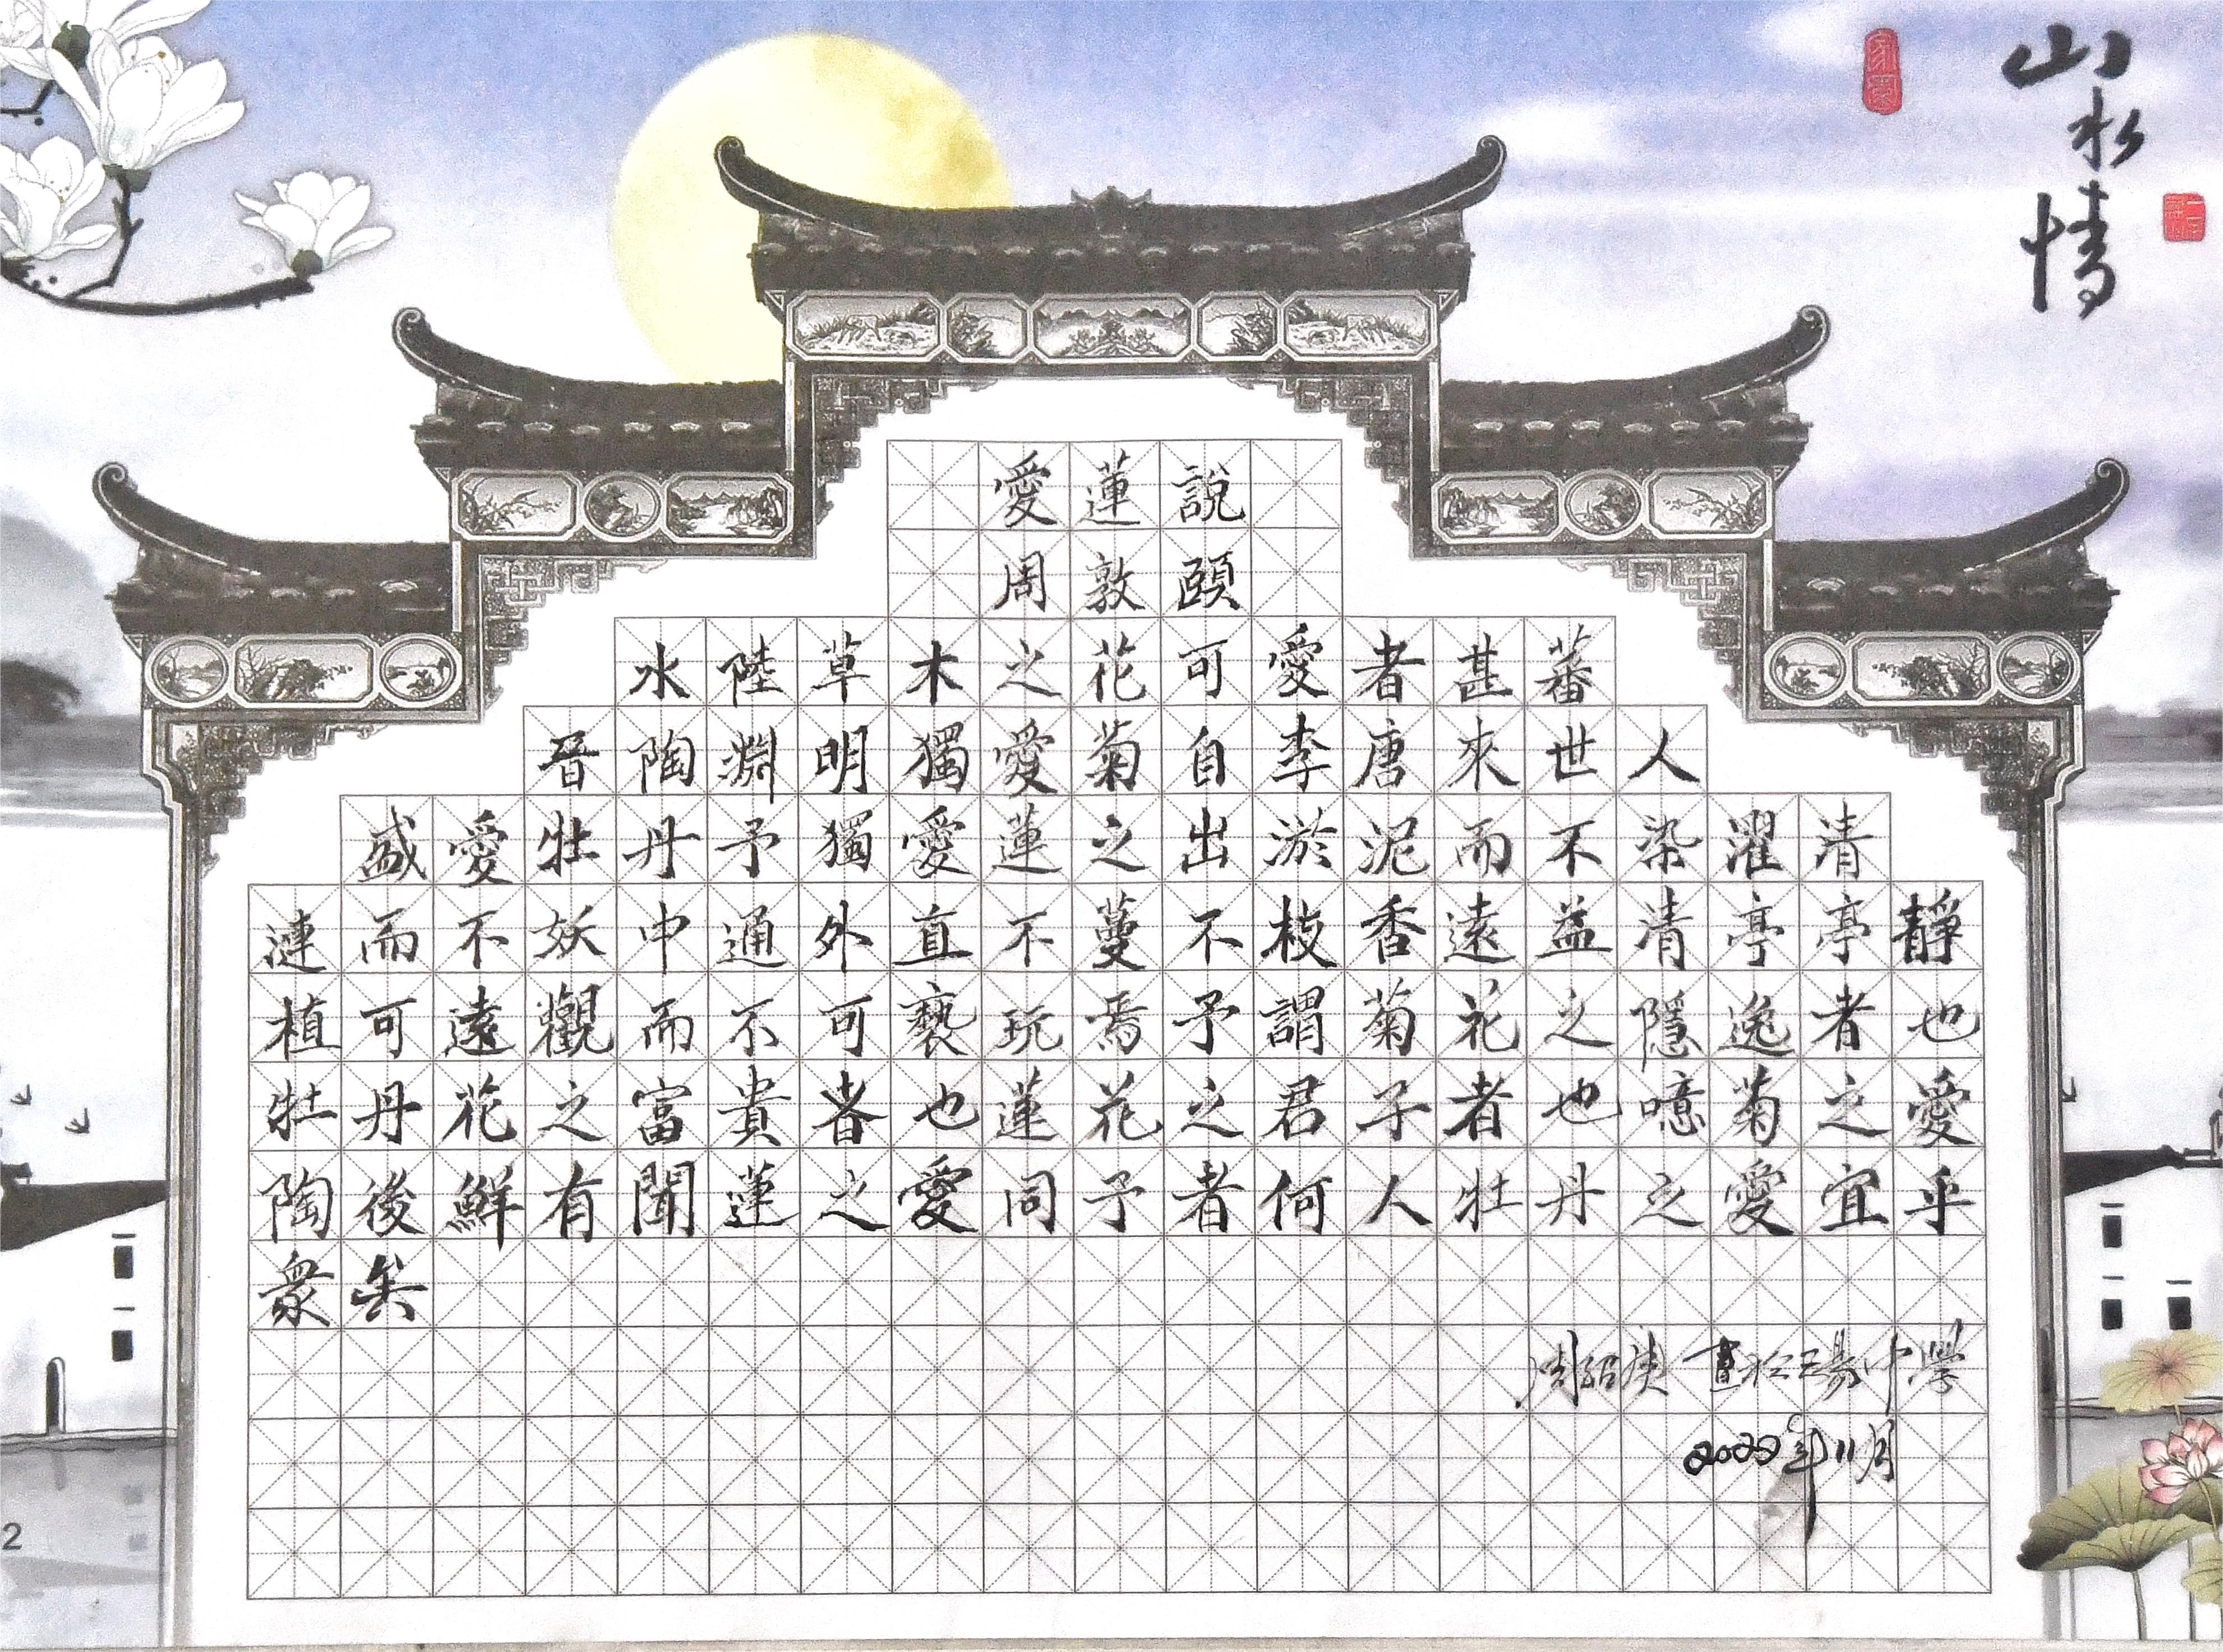 山水情
愛蓮說
周敦頤
水陸草木之花可愛者甚蕃
晉陶淵明獨愛菊自李唐來世人
盛愛牡丹予獨愛蓮之出淤泥而不染濯清
漣而不妖中通外直不蔓不枝香遠益清亭亭靜
植可遠觀而不可褻玩焉予謂菊花之隱逸者也
牡丹花之富貴者也蓮花之君子者也噫菊之愛
陶後鮮有聞蓮之愛同予者何人牡丹之愛宜乎
衆矣
書於 中學
2022年11月
2